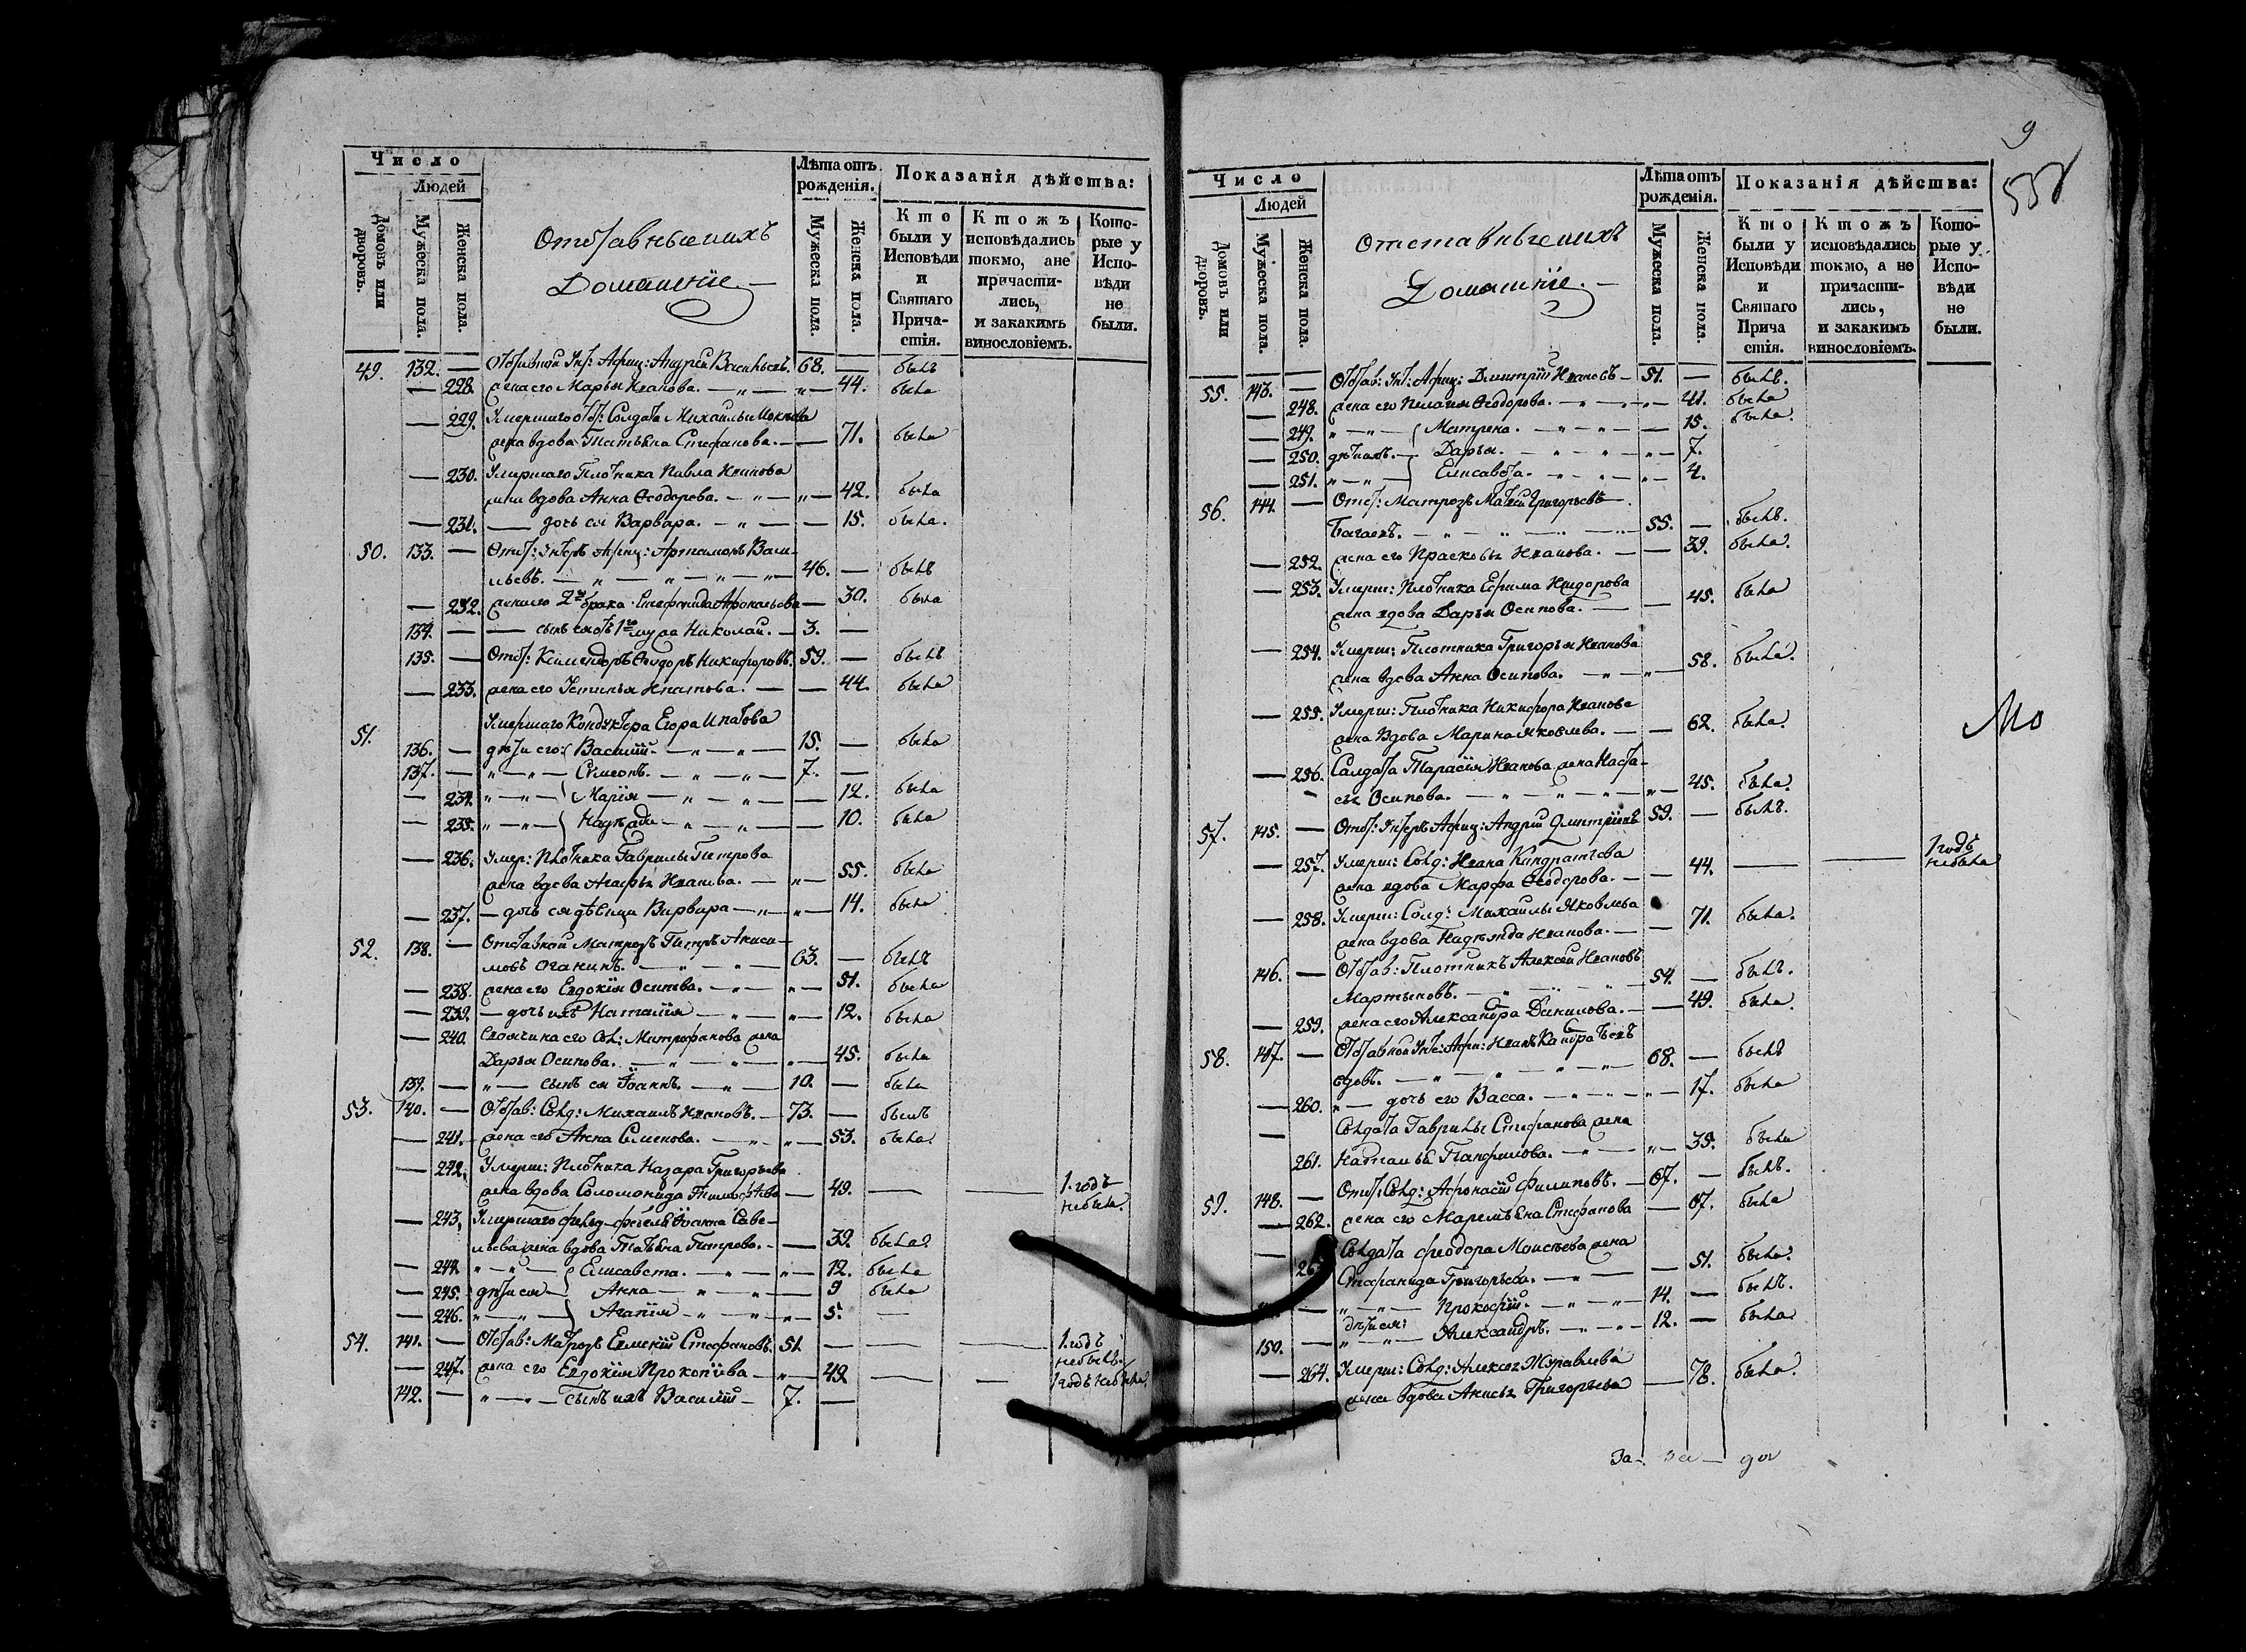 Число
Людей
Домовъ или дворовъ.
Мужеска пола.
Женска пола.
Отставные и ихъ
Домашніе.
Лѣта отъ рожденія.
Мужеска пола.
Женска пола.
Показанія дѣйства:
Кто были у Исповѣди и Святаго Причастія.
Ктожъ исповѣдались токмо, ане причастились, и закакимъ винословіемъ.
Которые у Исповѣди не были.
49. 132. — Отставной Унт: Афиц: Андрей Васильевъ. 68. — былъ
— 228. жена его Марья Иванова. — 44. была
— 229. Умершаго отст: Солдата Михаилы
жена вдова Татьяна Стефанова. — 71. была
— 230. Умершаго Плотника Павла Иванова
жена вдова Анна Ѳеодорова. — 42. была
— 231. — дочь ея Варвара. — 15. была.
50. 133. — Отст: Унтеръ Афиц: Артамонъ Васи-
льевъ. — 46. — былъ
— 232. жена его 2го брака Стефанида — 30. была
134. — — сынъ ея отъ 1го мужа Николай. — 3. —
135. — Отст: Ѳедоръ Никифоровъ. 59. — былъ
— 233. жена его Устинья Ипатова. — — 44. была
51. Умершаго Кондуктера Егора Ипатова
136. — дѣти его: Василій. — 15. — была
137. — Симеонъ. — 7. —
— 234. Марія — 12. была
— 235. Надежда — 10. была
— 236. Умер: Плотника Гаврилы Петрова
жена вдова Агафья Иванова. — 55. была
— 237. — дочь ея дѣвица Варвара — 14. была
52. 138. — Отставной Матрозъ Петръ Аниси-
мовъ Оганинъ. — 63. — былъ
— 238. жена его Евдокія Осипова. — 51. была
— 239. — дочь ихъ Наталія — 12. была
— 240. его Сол: Митрофанова жена
Дарья Осипова. — 45. была
139. — — сынъ ея Іоаннъ. — 10. — была
53. 140. — Отстав: Солд: Михаилъ Ивановъ. — 73. — былъ
— 241. жена его Анна Семенова. — 53. была
— 242. Умерш: Плотника Назара Григорьева
жена вдова Соломонида Тимофѣева — 49. — — 1. годъ
небыла.
— 243. Умершаго Іоанна Саве-
льева жена вдова Татьяна Петрова. — 39. была
— 244. Елисавета. — 12. была
— 245. дѣти ея Анна — 9 была
— 246. Агапія — 5. —
54. 141. — Отстав: Матрозъ Стефановъ. 51. — — — 1. годъ
небылъ.
— 247. жена его Евдокія Прокопіева — 49. — — 1 годъ небыла.
142. — — сынъ ихъ Василій — 7. —
9
Число
Людей
Домовъ или дворовъ.
Мужеска пола.
Женска пола.
Отставные и ихъ
Домашніе.
Лѣта отъ рожденія.
Мужеска пола.
Женска пола.
Показанія дѣйства:
Кто были у Исповѣди и Святаго Прича стія.
Ктожъ исповѣдались токмо, а не причастились, и закакимъ винословіемъ.
Которые у Исповѣди не были.
55. 143. — Отстав: Унт: Афиц: Дмитрій Ивановъ — 51. — былъ.
— 248. жена его Пелагея Ѳеодорова. — 41. была
— 249. Матрена. — 15. была.
— 250. дѣти ихъ. Дарья. — 7.
— 251. Елисавета. — 4.
56. 144. — Отст: Матрозъ Матвей Григорьевъ
Багаевъ. — 55. — былъ.
— 252. жена его Прасковья Иванова. — 39. была.
— 253. Умерш: Плотника Ефима
жена вдова Дарья Осипова. — 45. была
— 254. Умерш: Плотника Григорья Иванова
жена вдова Анна Осипова. — 58. была.
— 255. Умерш: Плотника Никифора Иванова
жена вдова Марина Яковлева. — 62. была.
— 256. Салдата Тарасія Иванова жена Наста-
сья Осипова. — 45. была.
57. 145. — Отст: Унтеръ Афиц: Андрей Дмитріевъ 59. — былъ.
— 257. Умерш: Солд: Ивана Кандратьева
жена вдова Марфа Ѳеодорова. — 44. — — 1 годъ
небыла
— 258. Умерш: Солд: Михаилы Яковлева
жена вдова Надежда Иванова. — 71. была.
146. — Отстав: Плотникъ Алексей Ивановъ
Мартыновъ. — 54. — былъ.
— 259. жена его Александра Данилова. — 49. была.
58. 147. — Отставной Унт: Афи: Иванъ
вдовъ. — 68. — былъ
— 260. — дочь его Васса. — 17. была
— Солдата Гаврилы Стефанова жена
261. Наталья Панфилова. — 35. была
59. 148. — Отст: Солд: Афонасій Филиповъ. — 67. — былъ.
— 262. жена его Маремьяна Стефанова — 67. была
— 26 Солдата Феодора Моисѣева жена
Стефанида Григорьева. — 51. была.
— Прокофій. — 14. — былъ.
дѣти ея:
150. — Александръ. — 12. — была
— 264. Умерш: Солд: Алексея Журавлева
жена вдова Анисья Григорьева — 78. была.